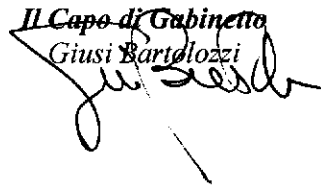 Il Capo di Gabinetto
Giusi Bartolozzi